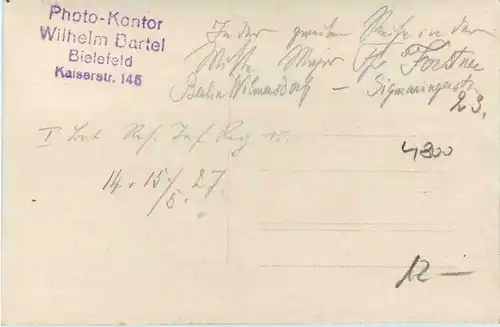 Photo-Kontor
Wilhelm Bartel
Bielefeld
Kaiserstr. 146
In der zweiten Reihe in der
Mitte Major Forstner
Berlin Wilmersdorf – Sigmaringerstr.
23.
I Bat. Res. Inf. Reg 15.
14. u 15./5. 27.
4800
12 —